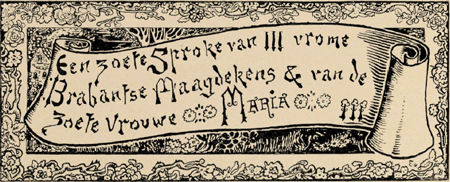 Een zoete Sproke van III vrome
Brabantse Maagdekens & van de
zoete Vrouwe MARIA